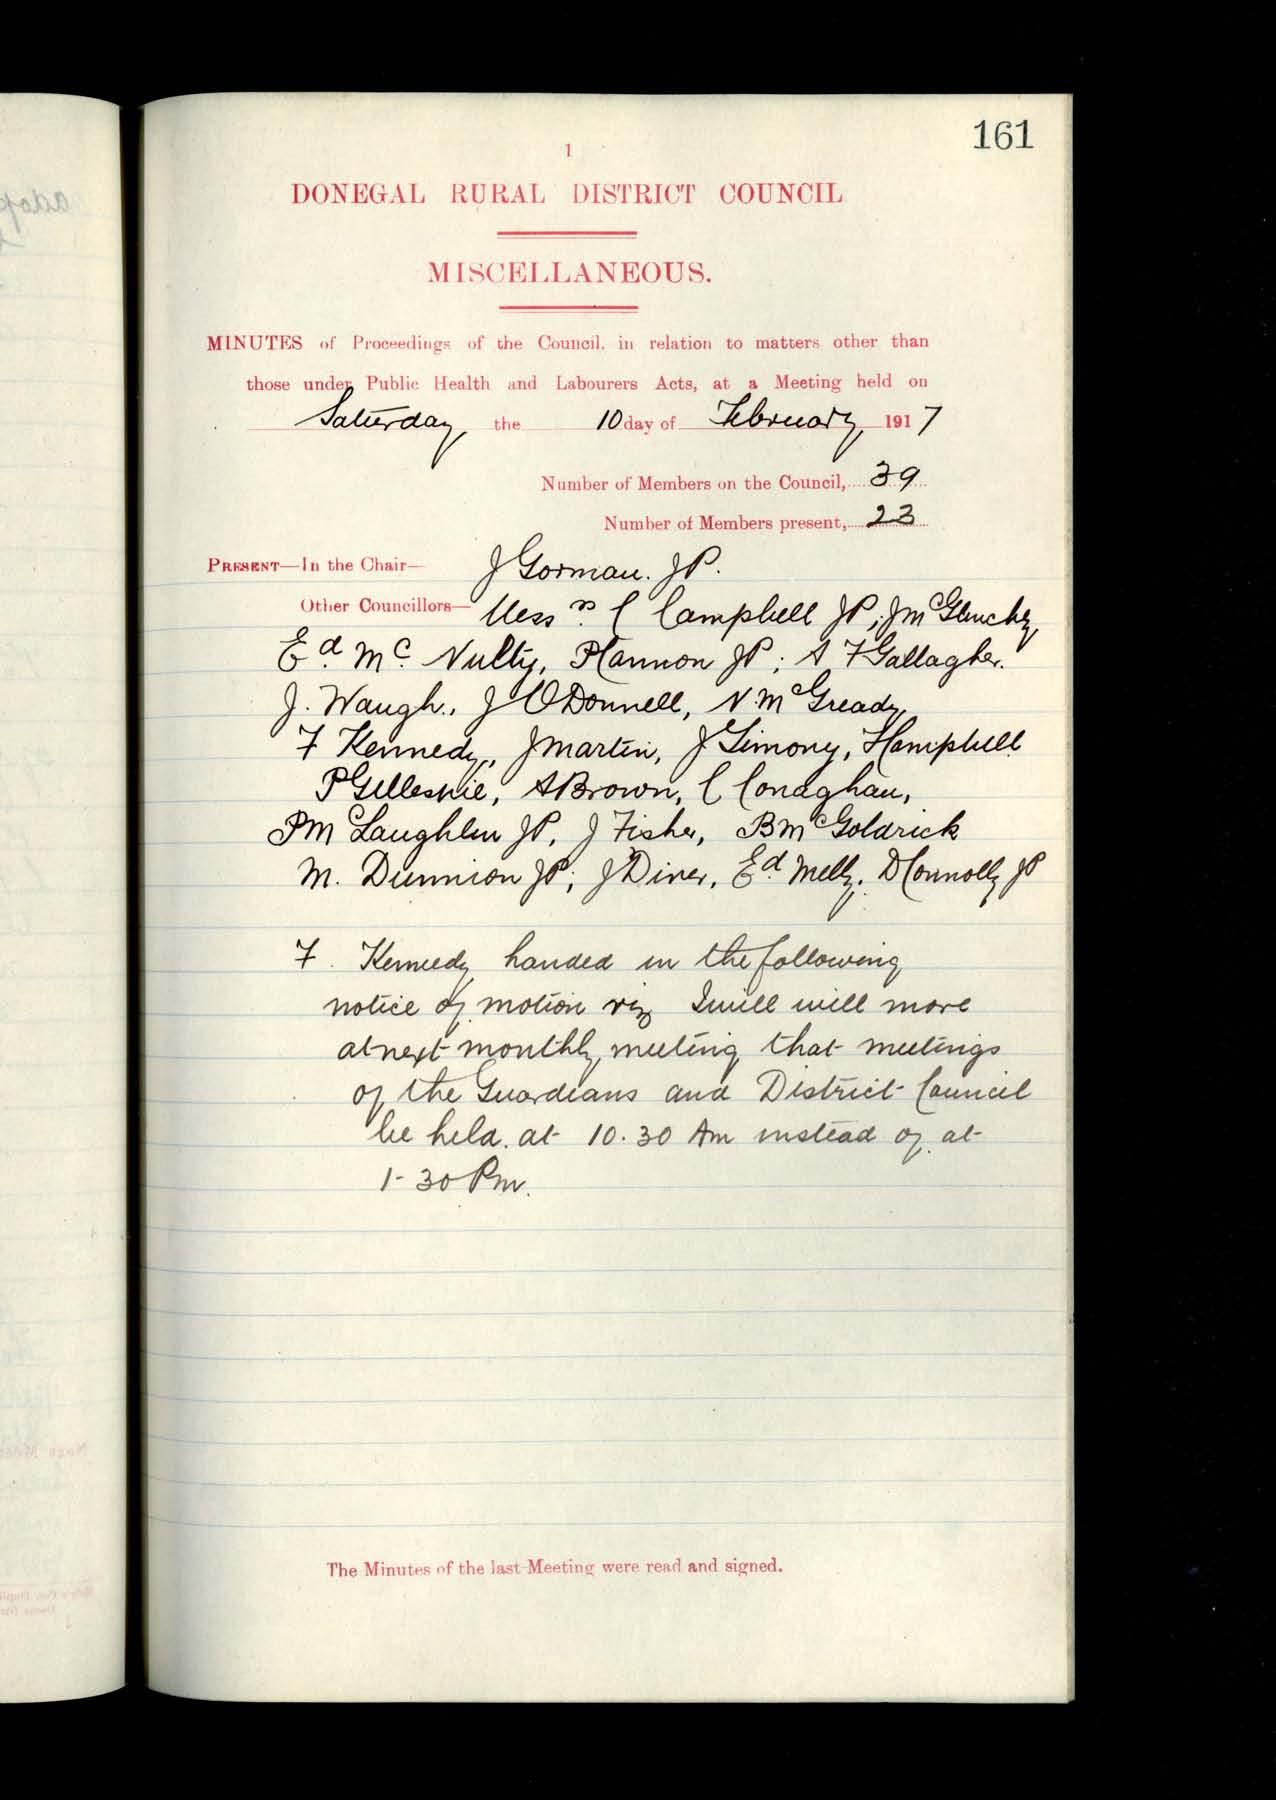 161
1
DONEGAL RURAL DISTRICT COUNCIL
MISCELLANEOUS.
MINUTES of Proceedings of the Council, in relation to matters other than
those under Public Health and Labourers Acts, at a Meeting held on
Saturday, the 10 day of February, 1917
Number of Members on the Council, 39
Number of Members present, 23
PRESENT—In the Chair— J Gorman. JP.
Other Councillors— Messrs. C Campbell JP; J McGlinchy,
Ed. Mc. Nulty, P Hannon JP; A F Gallagher.
J. Waugh., J O'Donnell, N. McGready,
F Kennedy, J Martin, J Timony, H Campbell
P Gillespie, A Brown, C Conaghan,
P McLaughlin JP, J Fisher, B McGoldrick
M. Dunnion JP; J Diver, Ed. Melly. D Connolly JP
F. Kennedy handed in the following
notice of motion viz I will will move
at next monthly meeting that meetings
of the Guardians and District Council
be held. at 10.30 Am instead of. at
1-30 Pm.
The Minutes of the last Meeting were read and signed.